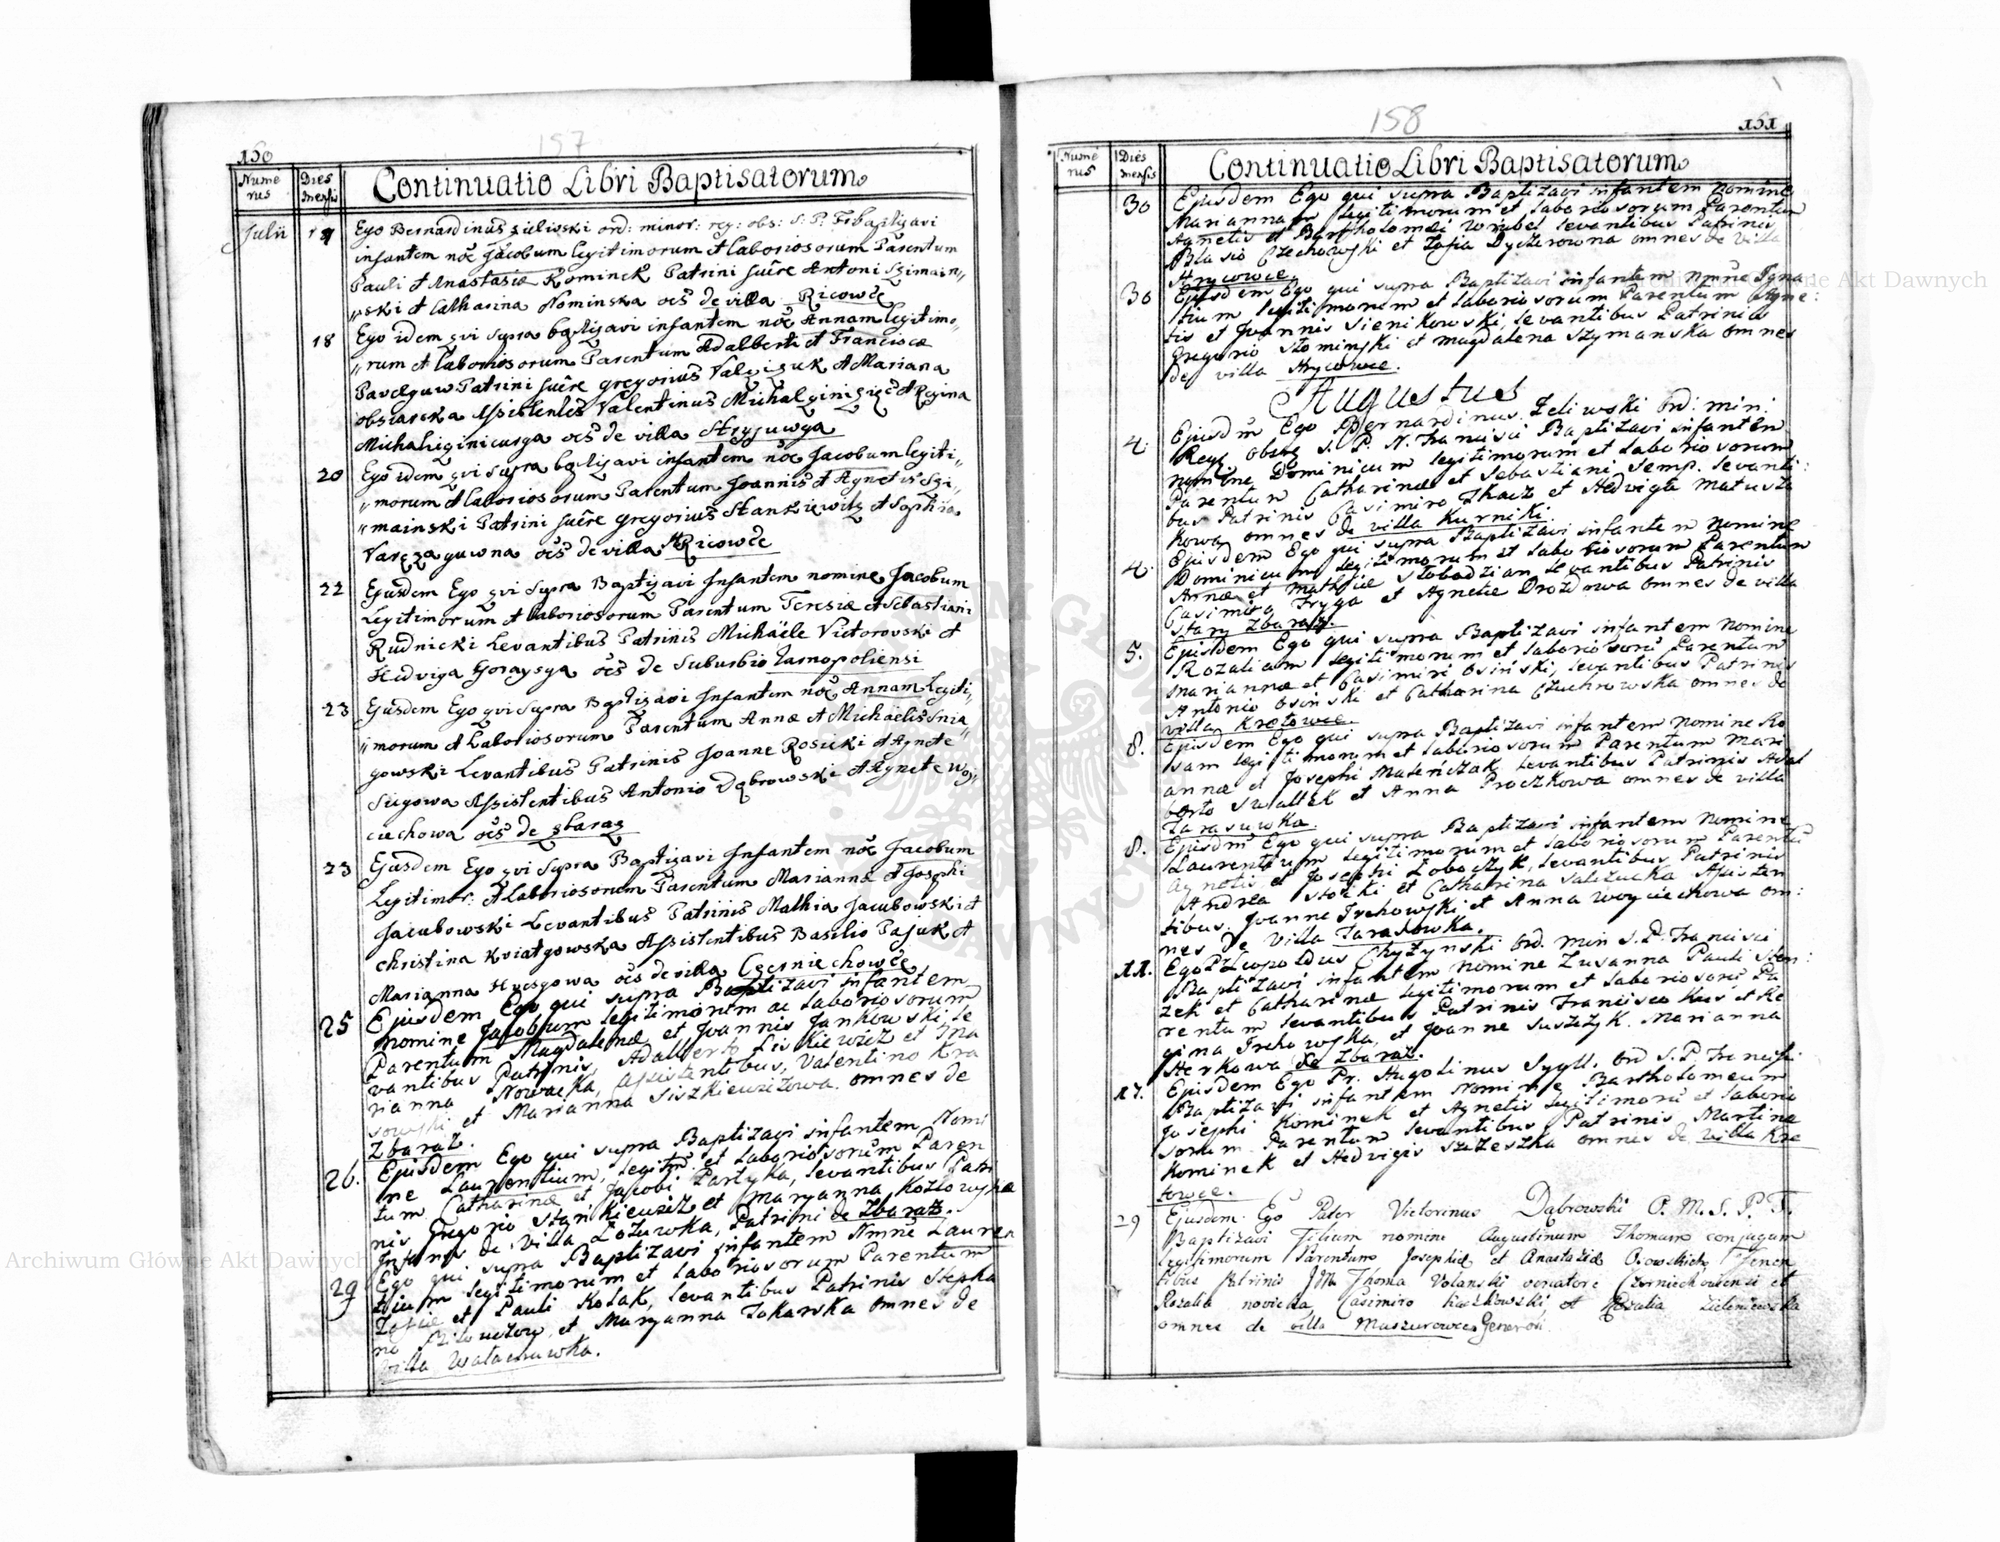 157
150
Nume
rus
Dies
mensis
Continuatio Libri Baptisatorum
Julii
17
Ego Bernardinus Zieliwski ord: minor: reg: obs: S: P: F: baptizavi
infantem noe Jacobum legitimorum et laboriosorum Parentum
Pauli et Anastasiæ Kominek Patrini fuere Antoni Szimain„
„ski et Catharina Nominska oes de villa Ricowce
18
Ego idem qvi supra baptizavi infantem noe Annam legitimo„
„rum et laboriosorum Parentum Adalberti et Francisca
Patrini fuere gregorius et Mariana
Assistentes Valentinus et Regina
oes de villa
20
Ego idem qvi supra baptizavi infantem noe Jacobum legiti„
„morum et laboriosorum Parentum Joannis et Agnetis Szi„
„mainski Patrini fuere gregorius Stankiewitz et Sophia
oes de villa Ricowce
22
Ejusdem Ego qvi supra Baptizavi Infantem nomine Jacobum
Legitimorum et laboriosorum Parentum Teresiæ et Sebastiani
Rudnicki Levantibus Patrinis Michaele Victorovski et
Hedviga oes de Suburbio Tarnopoliensi
23
Ejusdem Ego qvi supra Baptizavi Infantem noe Annam Legiti„
„morum et Laboriosorum Parentum Annæ et Michaelis Snia„
gowski Levantibus Patrinis Joanne Rosicki et Agnete
Assistentibus Antonio Dąbrowski et Agnete Woj„
ciechowa oes de Zbaraz
23
Ejusdem Ego qvi supra Baptizavi Infantem noe Jacobum
Legitimor: et Laboriosorum Parentum Mariannæ et Josephi
Jacubowski Levantibus Patrinis Mathia Jacubowski et
Christina Kviatgowska Assistentibus Basilio Pajuk et
Marianna oes de villa Czerniechowce
25
Ejusdem Ego qui supra Baptizavi infantem
nomine Jacobum legitimorum ac laboriosorum
Parentum Magdalenæ et Joannis Jankowski le
vantibus Patrinis, Adalberto Liskiewicz et Ma
rianna Nowacka, Assistentibus, Valentino Kra
sowski et Marianna Siszkiewiczowa omnes de
Zbaraz.
26.
Ejusdem Ego qui supra Baptizavi infantem Nomi
ne Laurentium, legitm: et laboriosorum Paren
tum Catharinæ et Jacobi Partyka, levantibus Patri
nis Gregorio Stankiewicz et Maryanna Kozłowska
Infans de villa Łozuwka, Patrini de Zbaraz.
29
Ego qui supra Baptizavi infantem Nmne Lauren
tium legitimorum et laboriosorum Parentum
Zofiæ et Pauli Kozak, levantibus Patrinis Stepha
no et Maryanna Tokarska omnes de
villa Wałachuwka.
158
151
Nume
rus
Dies
mensis
Continuatio Libri Baptisatorum
30
Ejusdem Ego qui supra Baptizavi infantem Nomine
Mariannam legitimorum et laboriosorum Parentum
Agnetis et Bartholomæi Wrubel levantibus Patrinis
Blasio Czechowski et Zofia Dyczkowna omnes de villa
Hrycowce.
30
Ejusdem Ego qui supra Baptizavi infantem Nmne Igna
tium legitimorum et laboriosorum Parentum Agne:
tis et Joannis Sienikowski, levantibus Patrinis
Gregorio Słominski et Magdalena Szymanska omnes
de villa Hrycowce.
Augustus
4.
Ejusdm Ego Bernardinus Zeliwski Ord: min:
Regl: obser S. P. N. Francisci Baptizavi infantem
nomine Dominicum legitimorum et laboriosorum
Parentum Catharinæ et Sebastiani Semp. levanti:
bus Patrinis Casimiro Tkacz et Hedviga Matusz
kowa omnes de villa Kurniki.
4.
Ejusdem Ego qui supra Baptizavi infantem Nomine
Dominicum legitimorum et laboriosorum Parentum
Annæ et Mathiæ Słobodzian levantibus Patrinis
Casimiro Fryga et Agnete Drozdowa omnes de villa
Stary Zbaraz.
5.
Ejusdem Ego qui supra Baptizavi infantem Nomine
Rozaliam legitimorum et laboriosorū Parentum
Mariannæ et Casimiri Osiński, levantibus Patrinis
Antonio Osinski et Catharina Czuchrowska omnes de
villa Kretowce.
8.
Ejusdem Ego qui supra Baptizavi infantem Nomine Ro
sam legitimorum et laboriosorum Parentum Mari
annæ et Josephi Mateńczak levantibus Patrinis Adal
berto Swiattek et Anna Proczkowa omnes de villa
Tarasuwka.
8.
Ejusdm Ego qui supra Baptizavi infantem Nomine
Laurentium legitimorum et laboriosorum Parentū
Agnetis et Josephi Łoboczyk, levantibus Patrinis
Andrea Stocki et Catharina Salczucka Assisten
tibus Joanne Trchowski et Anna Woyciechowa om:
nes de villa Tarasuwka.
11.
Ego P. Leopoldus Chyzynski Ord. Min S. P. Francisci
Baptizavi infantem Nomine Zusanna Pauli Sten:
zek et Catharinæ legitimorum et laboriosorū Pa
rentum levantibus Patrinis Francisco Kus et Re
gina Trchowska, et Joanne Suszczyk. Marianna
Herkowa de Zbaraz.
17.
Ejusdem Ego Pr. Hugolinus Sygll, Ord S. P. Francisi
Baptizavi infantem Nomine Bartholomeum
Josephi Kominek et Agnetis legitimorū et laborio
sorum Parentum levantibus Patrinis Martino
Kominek et Hedvigis Szczeszka omnes de villa Kre
towce.
29
Ejusdem Ego Pater Victorinus Dąbrowski O. M. S. P. F.
Baptizavi Filium nomine Augustinum Thomam conjugum
legitimorum Parentum Josephi et Anastasiæ Osowskich, Tenen
tibus Patrinis Thoma Volanski venatore Czerniechowiensi et
Rozalia novicka Casimiro Kaczkowski, et Rozalia Zieleniewska
omnes de villa